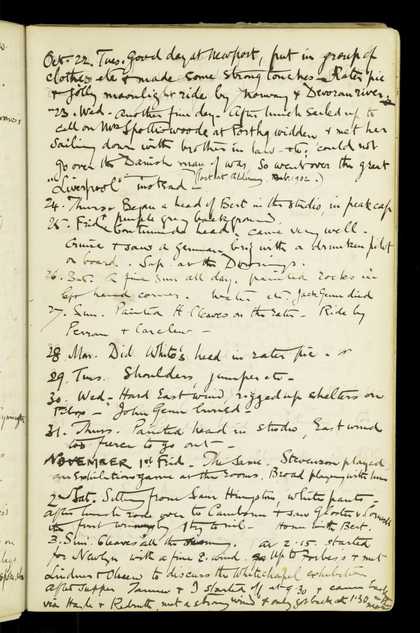 Oct. 22. Tues. Good day at Newport, put in group of
clothes etc & made some strong touches – Later pie
& jolly moonlight ride by Norway & Devoran river.
23. Wed. Another fine day. After lunch sailed up to
call on Mrs Spottiswoode at Porthgwidden & met her
sailing down with brother in law etc, could not
go over the Danish man of war. So went over the great
"Liverpool" instead –
24. Thurs. Began a head of Bert in the studio, in peak cap
purple grey background
25. Frid. Continued head, came very well.
Cruise & saw a german brig with a drunken pilot
on board. Sup. at the Downings.
26. Sat. A fine sun all day. painted rocks in
left hand corner. Jack Genn died
27. Sun. Painted H. Cleaves on the Later – Ride by
Perran &
28 Mon. Did White's head in later pie –
29. Tues. Shoulders, jumper etc –
30. Wed. Hard East wind, rigged up shelters on
John Genn buried –
31. Thurs. Painted head in studio, East wind
too fierce to go out –
NOVEMBER 1st Frid – The same. Stevenson played
an Exhibition game at the rooms. Broad playing with him
2nd Sat. Sitting from Sam Hingston, white pants –
after lunch rode over to Camborne & saw
first Home with Bert.
3. Sun. Cleaves all the morning. at 2.15. started
for Newlyn with a fine E. wind. Up to Forbes's & met
Lindner & Olsson to discuss the Whitechapel exhibition
after supper Tanner & I started off at 9.30 & came back
via Hayle & Redruth, met a strong wind & only got back at 1.30